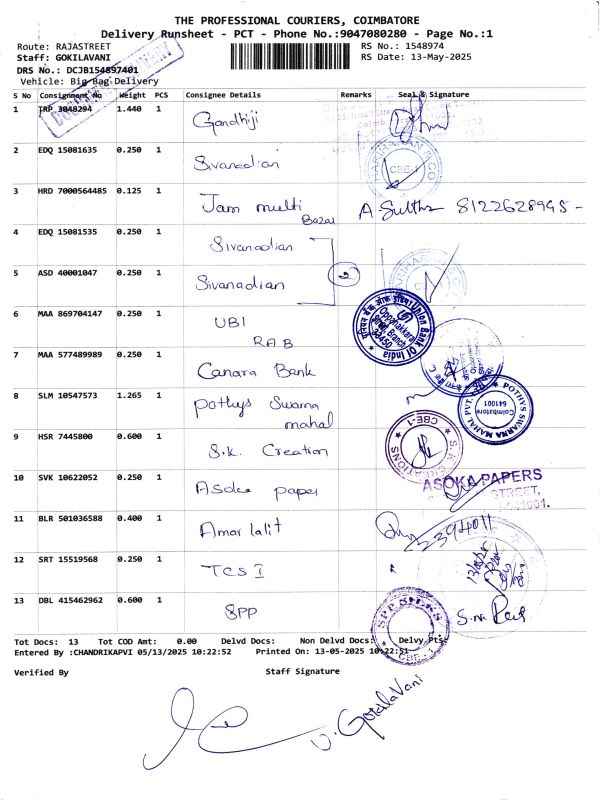 THE PROFESSIONAL COURIERS, COIMBATORE
Delivery Runsheet - PCT - Phone No.:9047080280 - Page No.:1
Route: RAJASTREET
RS No.: 1548974
Staff: GOKILAVANI
RS Date: 13-May-2025
DRS No.: DCJB154897401
Vehicle: Big Bag Delivery
S No Consignment No Weight PCS Consignee Details Remarks Seal & Signature
1 TRP 3048294 1.440 1 Gandhiji
2 EDQ 15081635 0.250 1 Sivanadian
HARIHARAN & CO
CBE-1
3 HRD 7000564485 0.125 1 Jam multi Bazar A Sulthr 8122628945 -
4 EDQ 15081535 0.250 1 Sivanadian
5 ASD 40001047 0.250 1 Sivanadian
2
6 MAA 869704147 0.250 1 UBI
RAB
Union Bank Of India
Oppanakkara Street Branch
7 MAA 577489989 0.250 1 Canara Bank
8 SLM 10547573 1.265 1 Pothys Swarna mahal
POTHYS SWARNA MAHAL PVT.
Coimbatore
641001
9 HSR 7445800 0.600 1 S.K. Creation
S.K. CREATIONS
CBE-1
10 SVK 10622052 0.250 1 Asoka paper
ASOKA PAPERS
STREET,
11 BLR 501036588 0.400 1 Amar lalit
12 SRT 15519568 0.250 1 TCS I
13 DBL 415462962 0.600 1 SPP
SPP SILKS
CBE - 1
Tot Docs: 13 Tot COD Amt: 0.00 Delvd Docs: Non Delvd Docs: Delvy Pts:
Entered By :CHANDRIKAPVI 05/13/2025 10:22:52 Printed On: 13-05-2025 10:22:51
Verified By Staff Signature
V. GokilaVani